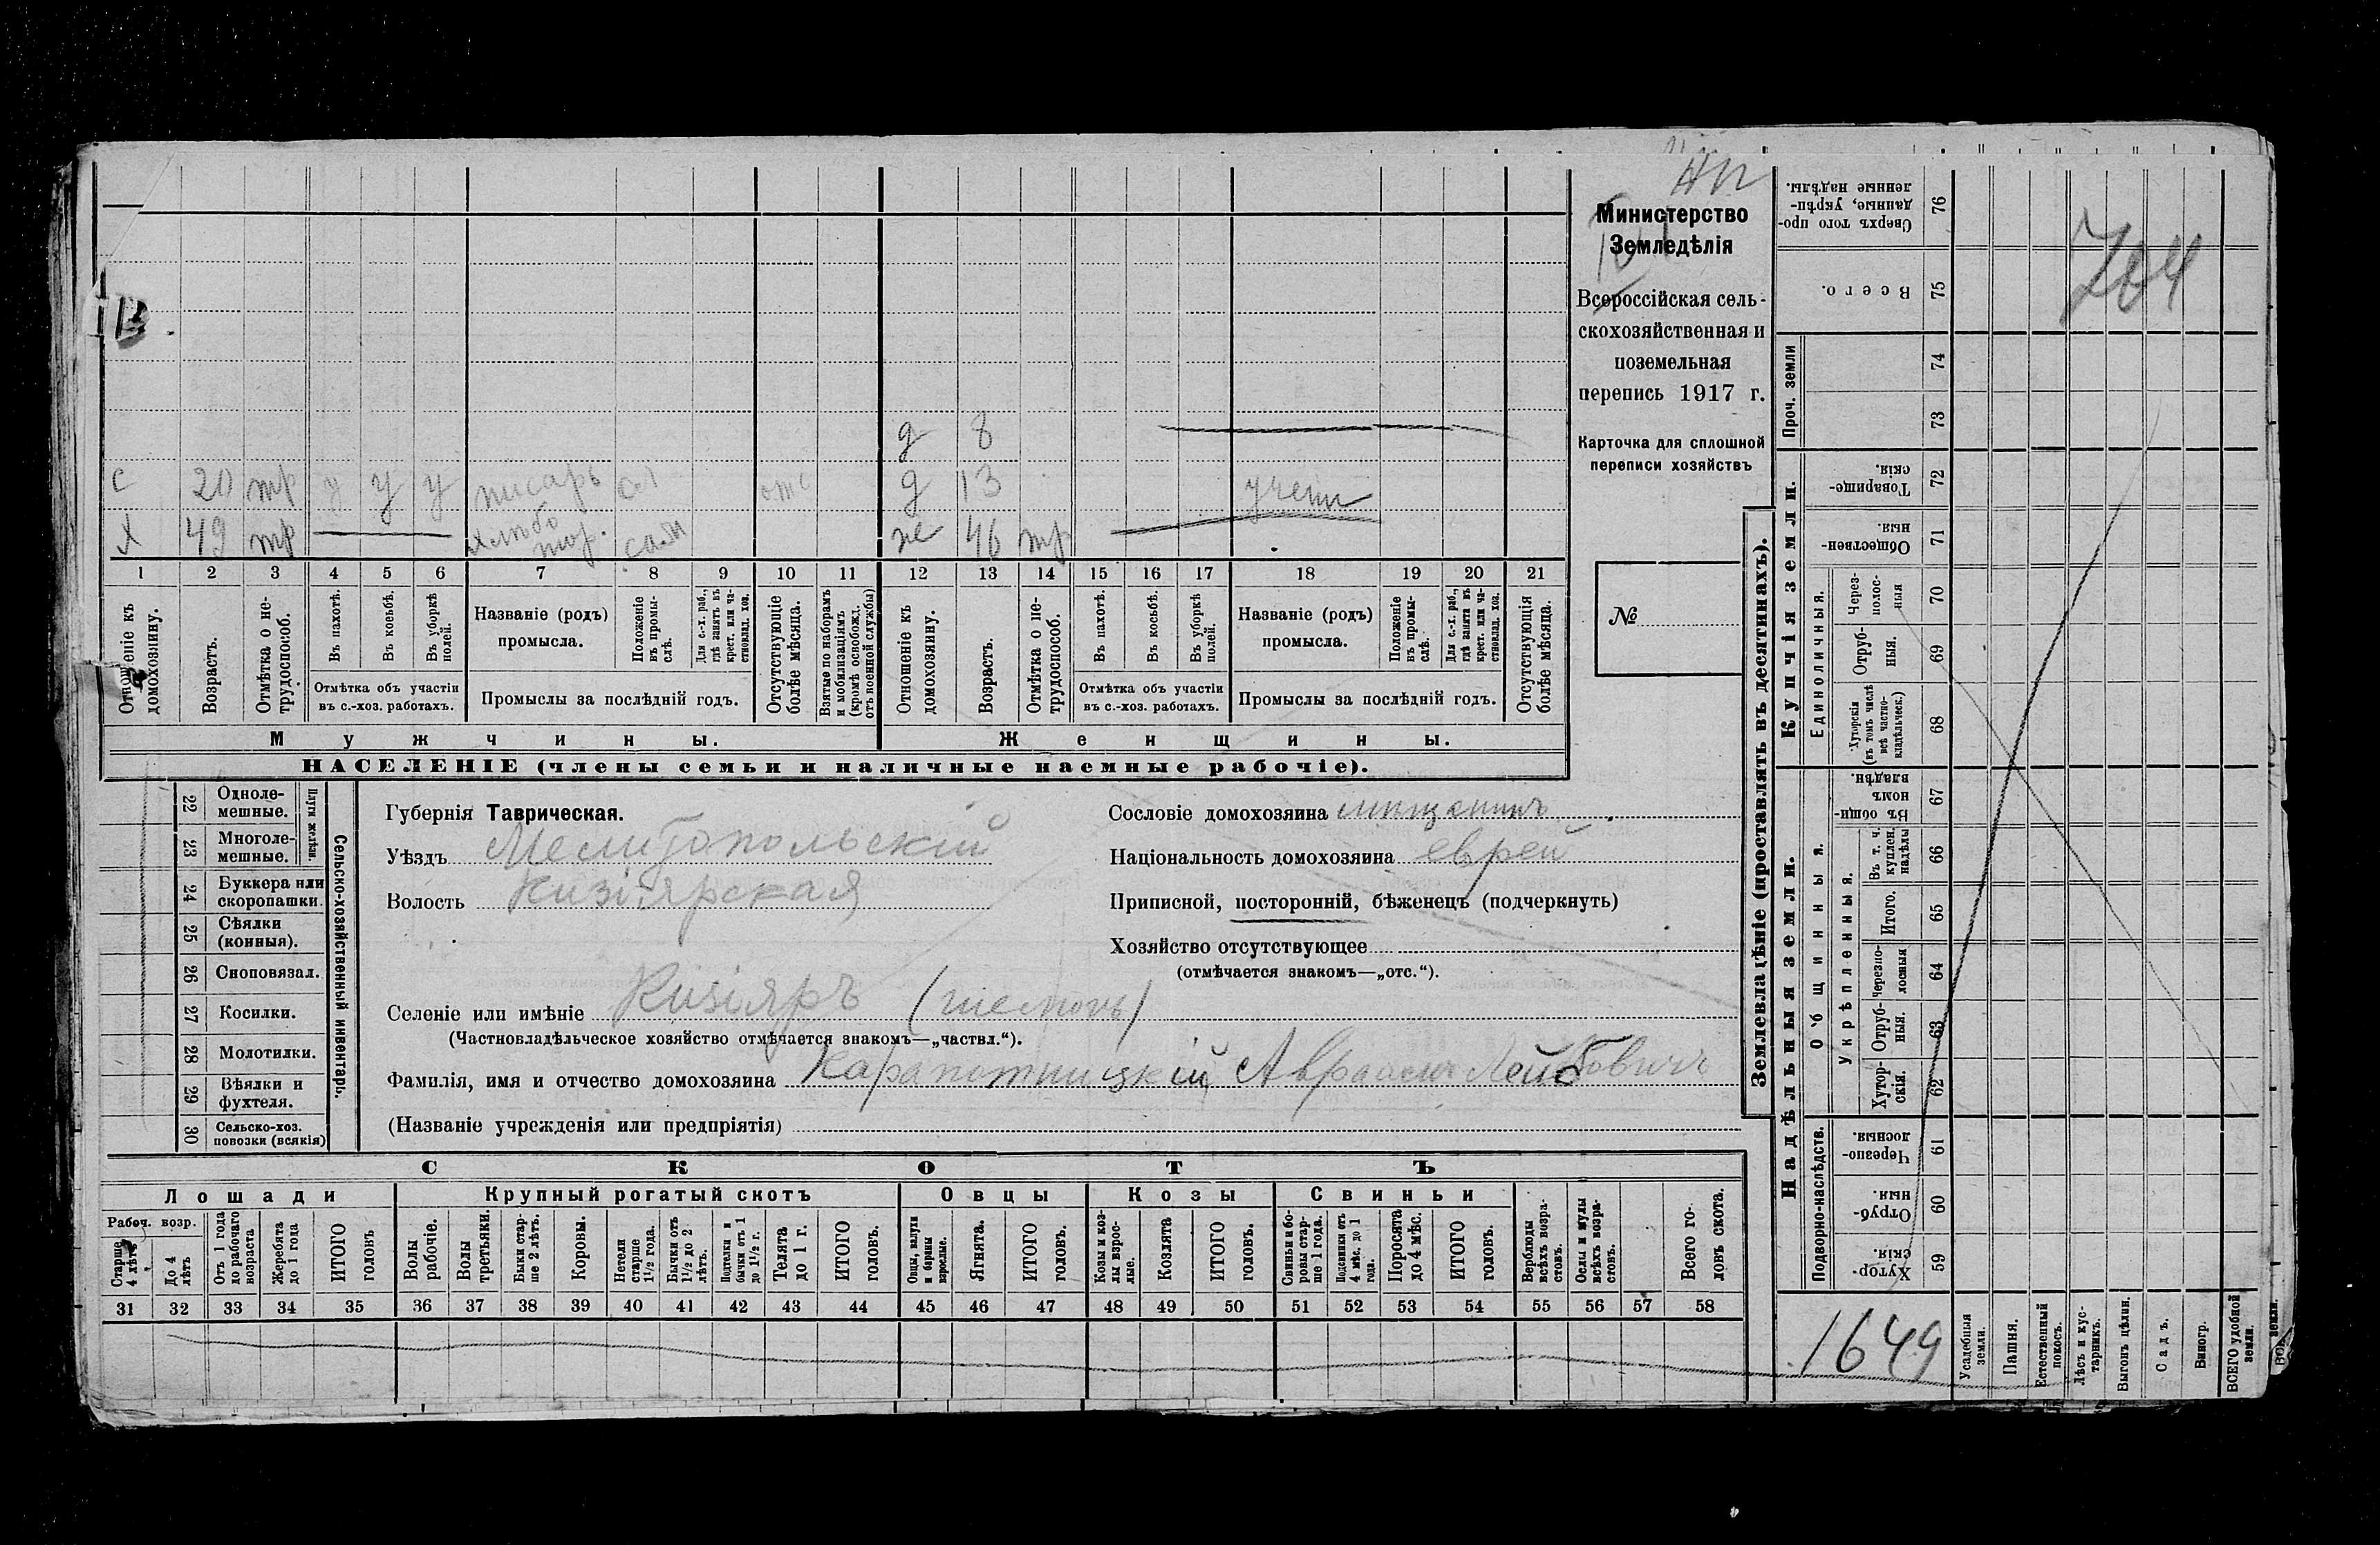 Министерство
Земледѣлія
Всероссійская сель-
скохозяйственная и
поземельная
перепись 1917 г.
Карточка для сплошной
переписи хозяйствъ
№
д 8
с 20 тр у у у писарь отс д 13 учени
х 49 тр хлѣбо тор. сам ж 46 тр
1 2 3 4 5 6 7 8 9 10 11 12 13 14 15 16 17 18 19 20 21
Отношеніе къ домохозяину.
Возрастъ.
Отмѣтка о не-трудоспособ.
Въ пахотѣ.
Въ косьбѣ.
Въ уборкѣ полей.
Отмѣтка объ участіи
въ с.-хоз. работахъ.
Названіе (родъ)
промысла.
Положеніе въ промы-слѣ.
Для с.-х. раб., гдѣ занятъ въ крест. или ча-стновлад. хоз.
Промыслы за послѣдній годъ.
Отсутствующіе болѣе мѣсяца.
Взятые по наборамъ и мобилизаціямъ (кромѣ освобожд. отъ военной службы)
Отношеніе къ домохозяину.
Возрастъ.
Отмѣтка о не-трудоспособ.
Въ пахотѣ.
Въ косьбѣ.
Въ уборкѣ полей.
Отмѣтка объ участіи
въ с.-хоз. работахъ.
Названіе (родъ)
промысла.
Положеніе въ промы-слѣ.
Для с.-х. раб., гдѣ занята въ крест. или ча-стновлад. хоз.
Промыслы за послѣдній годъ.
Отсутствующія болѣе мѣсяца.
Мужчины.
Женщины.
НАСЕЛЕНІЕ (члены семьи и наличные наемные рабочіе).
22 Одноле-мешные.
23 Многоле-мешные.
Плуги желѣзн.
24 Буккера или скоропашки.
25 Сѣялки (конныя).
26 Сноповязал.
27 Косилки.
28 Молотилки.
29 Вѣялки и фухтеля.
30 Сельско-хоз. повозки (всякія)
Сельско-хозяйственный инвентарь.
Губернія Таврическая.
Уѣздъ Мелитопольскій
Волость Кизіярская
Сословіе домохозяина мѣщанинъ
Національность домохозяина еврей
Приписной, посторонній, бѣженецъ (подчеркнуть)
Хозяйство отсутствующее
(отмѣчается знакомъ—„отс.“).
Селеніе или имѣніе Кизіяръ
(Частновладѣльческое хозяйство отмѣчается знакомъ—„частвл.“).
Фамилія, имя и отчество домохозяина Карапотницкій Авраамъ Лейбовичъ
(Названіе учрежденія или предпріятія)
СКОТЪ
Лошади
Крупный рогатый скотъ
Овцы
Козы
Свиньи
Рабоч. возр.
Старше 4 лѣтъ
До 4 лѣтъ
Отъ 1 года до рабочаго возраста
Жеребята до 1 года
ИТОГО головъ
Волы рабочіе.
Волы третьяки.
Быки стар-ше 2 лѣтъ.
Коровы.
Нетели старше 1½ года.
Бычки отъ 1½ до 2 лѣтъ.
Подтелки и бычки отъ 1 до 1½ г.
Телята до 1 г.
ИТОГО головъ.
Овцы, валухи и бараны взрослые.
Ягнята.
ИТОГО головъ.
Козы и коз-лы взрос-лые.
Козлята
ИТОГО головъ.
Свиньи и бо-ровы стар-ше 1 года.
Подсвинки отъ 4 мѣс. до 1 года.
Поросята до 4 мѣс.
ИТОГО головъ.
Верблюды всѣхъ возра-стовъ.
Ослы и мулы всѣхъ возра-стовъ.
Всего го-ловъ скота.
31 32 33 34 35 36 37 38 39 40 41 42 43 44 45 46 47 48 49 50 51 52 53 54 55 56 57 58
Землевладѣніе (проставлять въ десятинахъ).
Купчія земли.
Надѣльныя земли.
Сверхъ того про-данные, укрѣп-ленные надѣлы. 76
Всего. 75
Проч. земли
74
73
Товарище-скія. 72
Обществен-ныя. 71
Единоличныя.
Через-полос-ныя 70
Отруб-ныя. 69
Хуторскія (въ томъ числѣ всѣ частно-владѣльческ.) 68
Общинныя.
Въ общин-номъ владѣн. 67
Укрѣпленныя.
Въ т. ч. куплен. надѣлы 66
Итого. 65
Черезпо-лосныя 64
Отруб-ныя. 63
Хутор-скія. 62
Подворно-наслѣдств.
Черезпо-лосныя. 61
Отруб-ныя. 60
Хутор-скія. 59
704
1649
Усадебныя земли.
Пашня.
Естественный покосъ.
Лѣсъ и кус-тарникъ.
Выгонъ цѣлин.
Садъ.
Виногр.
ВСЕГО удобной земли.